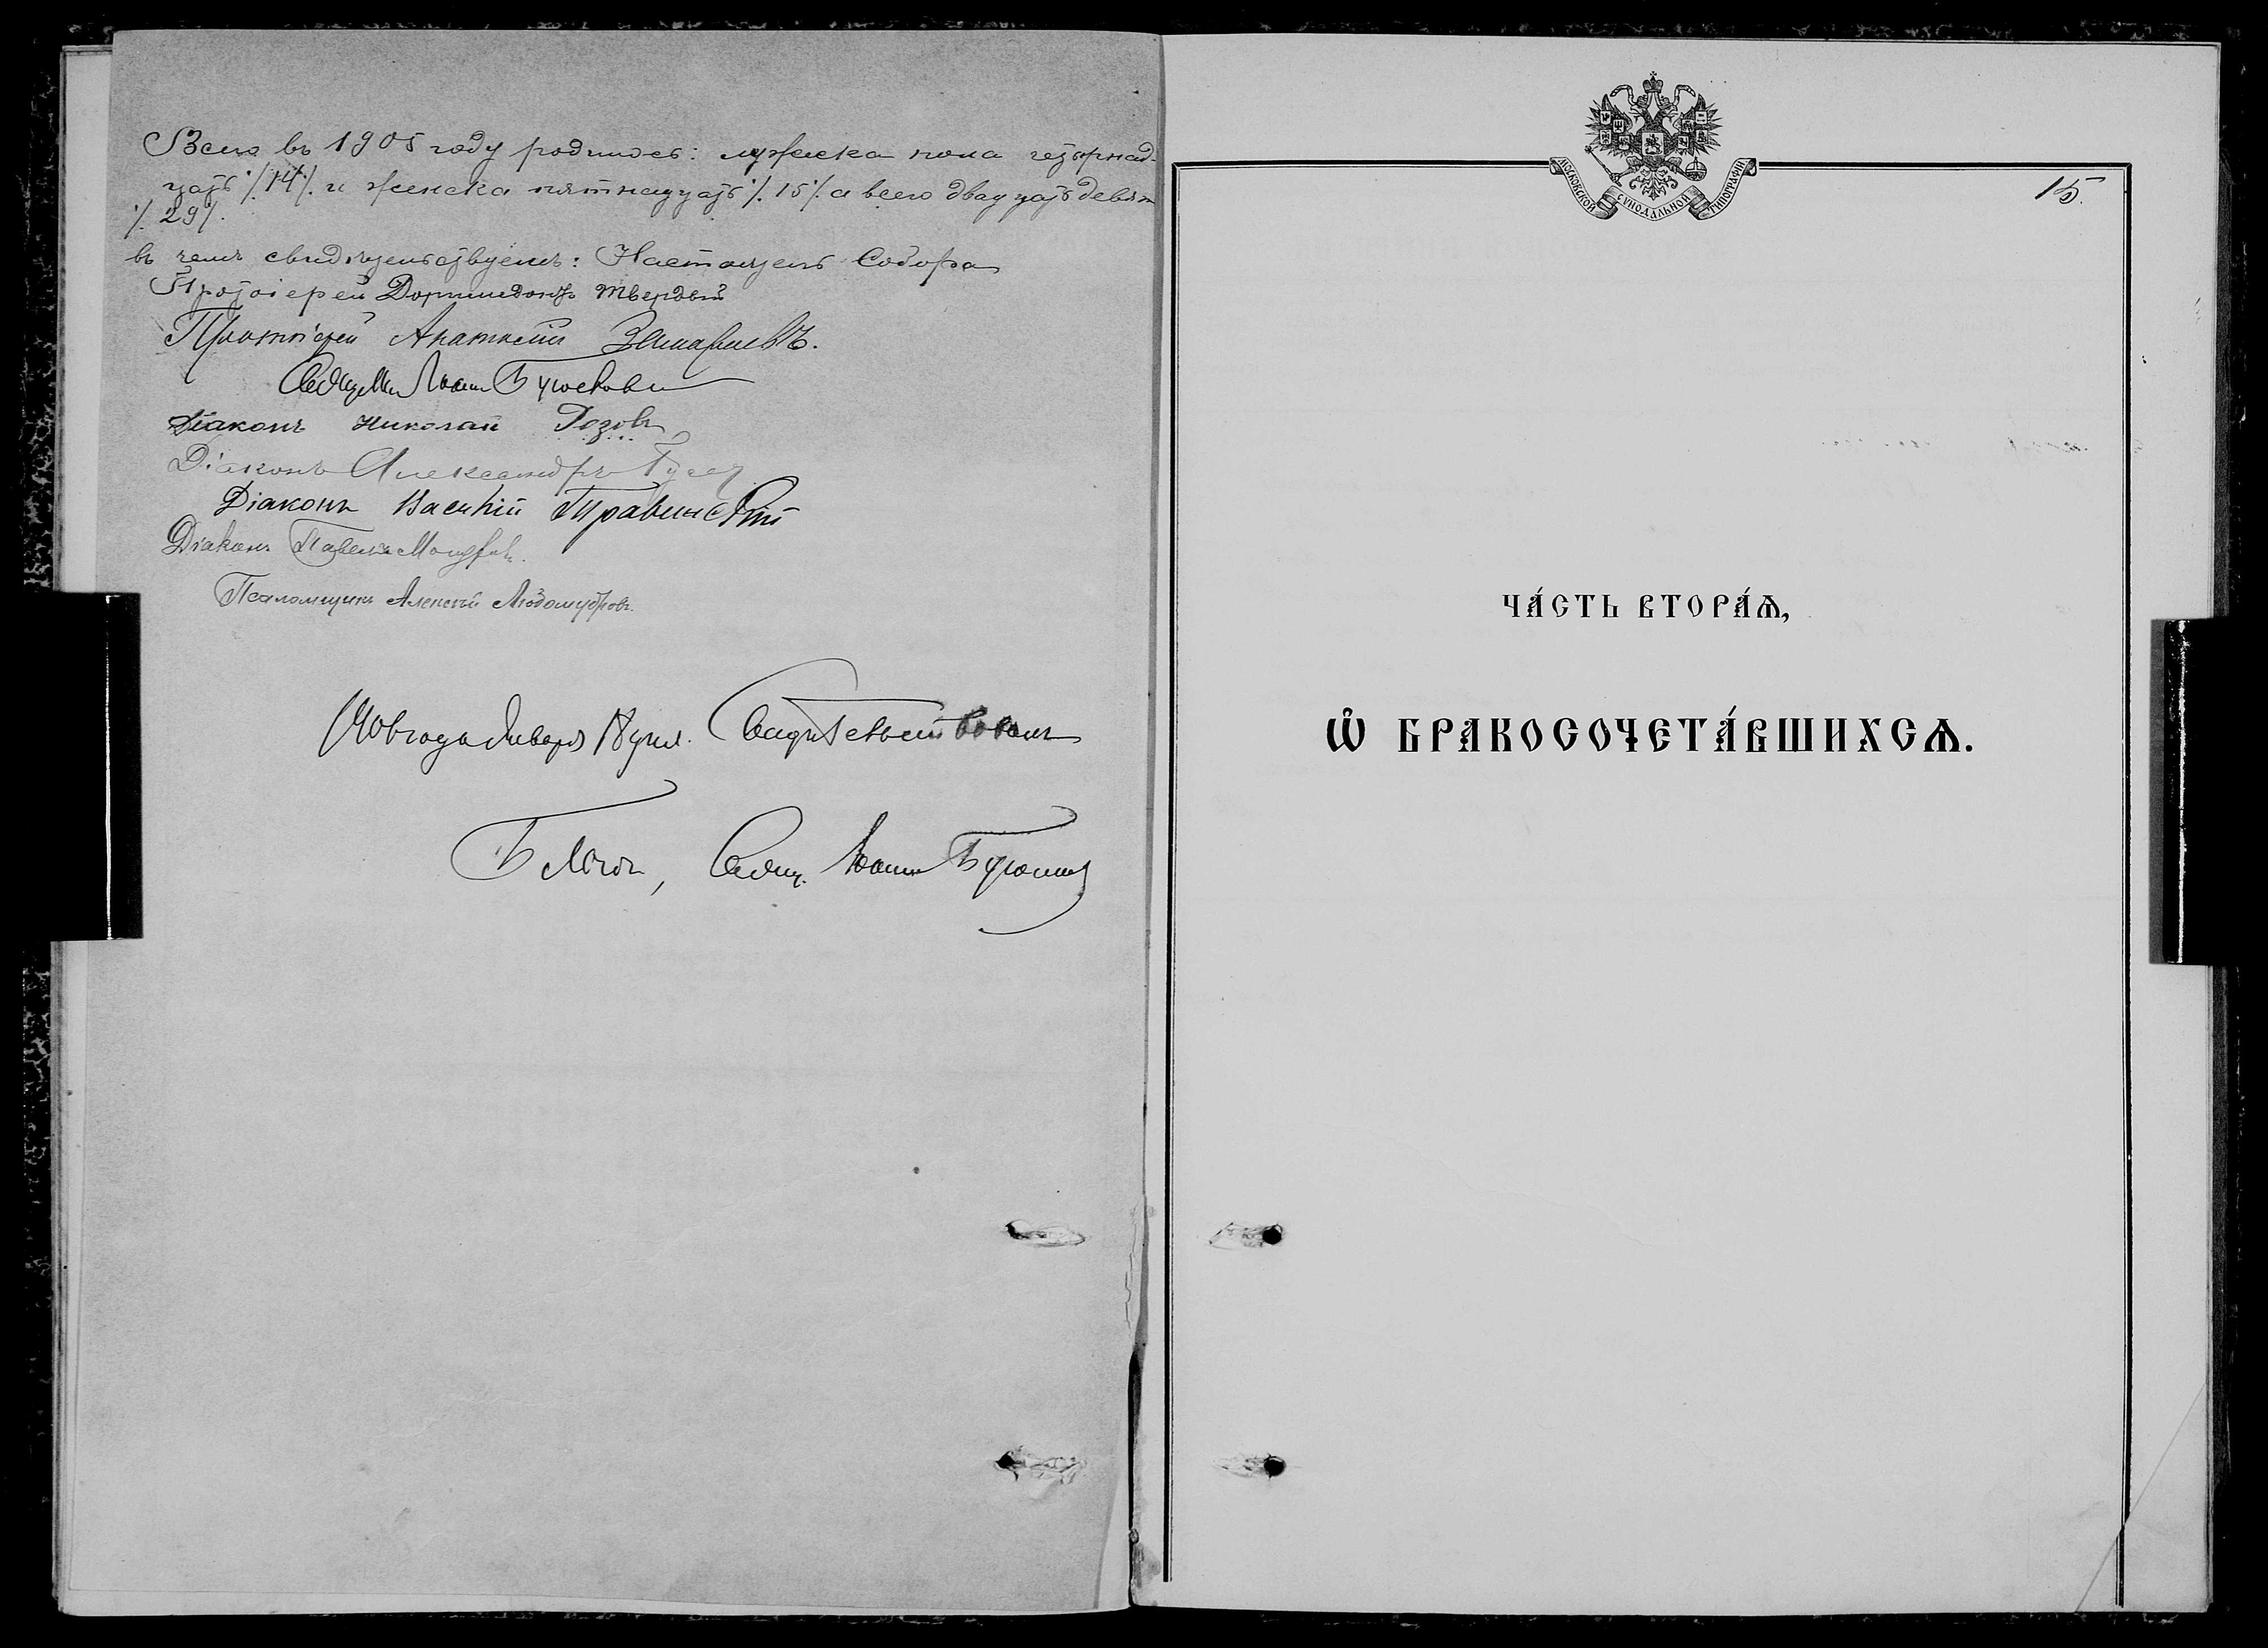 Всего въ 1905 году родилось: мужеска пола четырнад-
цать ·/.14/. и женска пятнадцать ·/.15·/. а всего двадцать девять
·/.29/.
въ чемъ свидѣтельствуемъ: Настоятель Собора
Протоіерей Доримедонтъ Твердый
Протоіерей Анатолій
Священ. Іоаннъ
Діаконъ Николай Розовъ
Діаконъ Александръ
Діаконъ Василій Травинскій
Діаконъ Павелъ
Псаломщикъ Алексѣй Любомудровъ.
1906 года Января дня. Свидѣтельствовалъ
Благоч., Свящ. Іоаннъ
МОСКОВСКОЙ СѴНОДАЛЬНОЙ ТИПОГРАФІИ
15.
ЧА́СТЬ ВТОРА́Ѧ,
Ѡ҆ БРАКОСОЧЕТА́ВШИХСѦ.